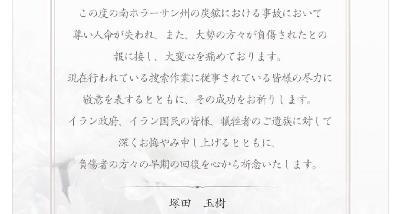 この度の南ホラーサン州の炭鉱における事故において
尊い人命が失われ、また、大勢の方々が負傷されたとの
報に接し、大変心を痛めております。
現在行われている捜索作業に従事されている皆様の尽力に
敬意を表するとともに、その成功をお祈りします。
イラン政府、イラン国民の皆様、犠牲者のご遺族に対して
深くお悔やみ申し上げるとともに、
負傷者の方々の早期の回復を心から祈念いたします。
塚田 玉樹